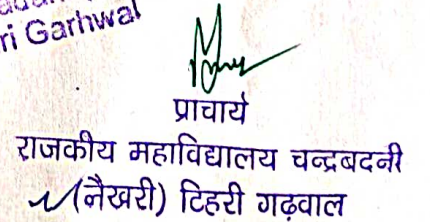 ri Garhwal
प्राचार्य
राजकीय महाविद्यालय चन्द्रबदनी
(नैखरी) टिहरी गढ़वाल